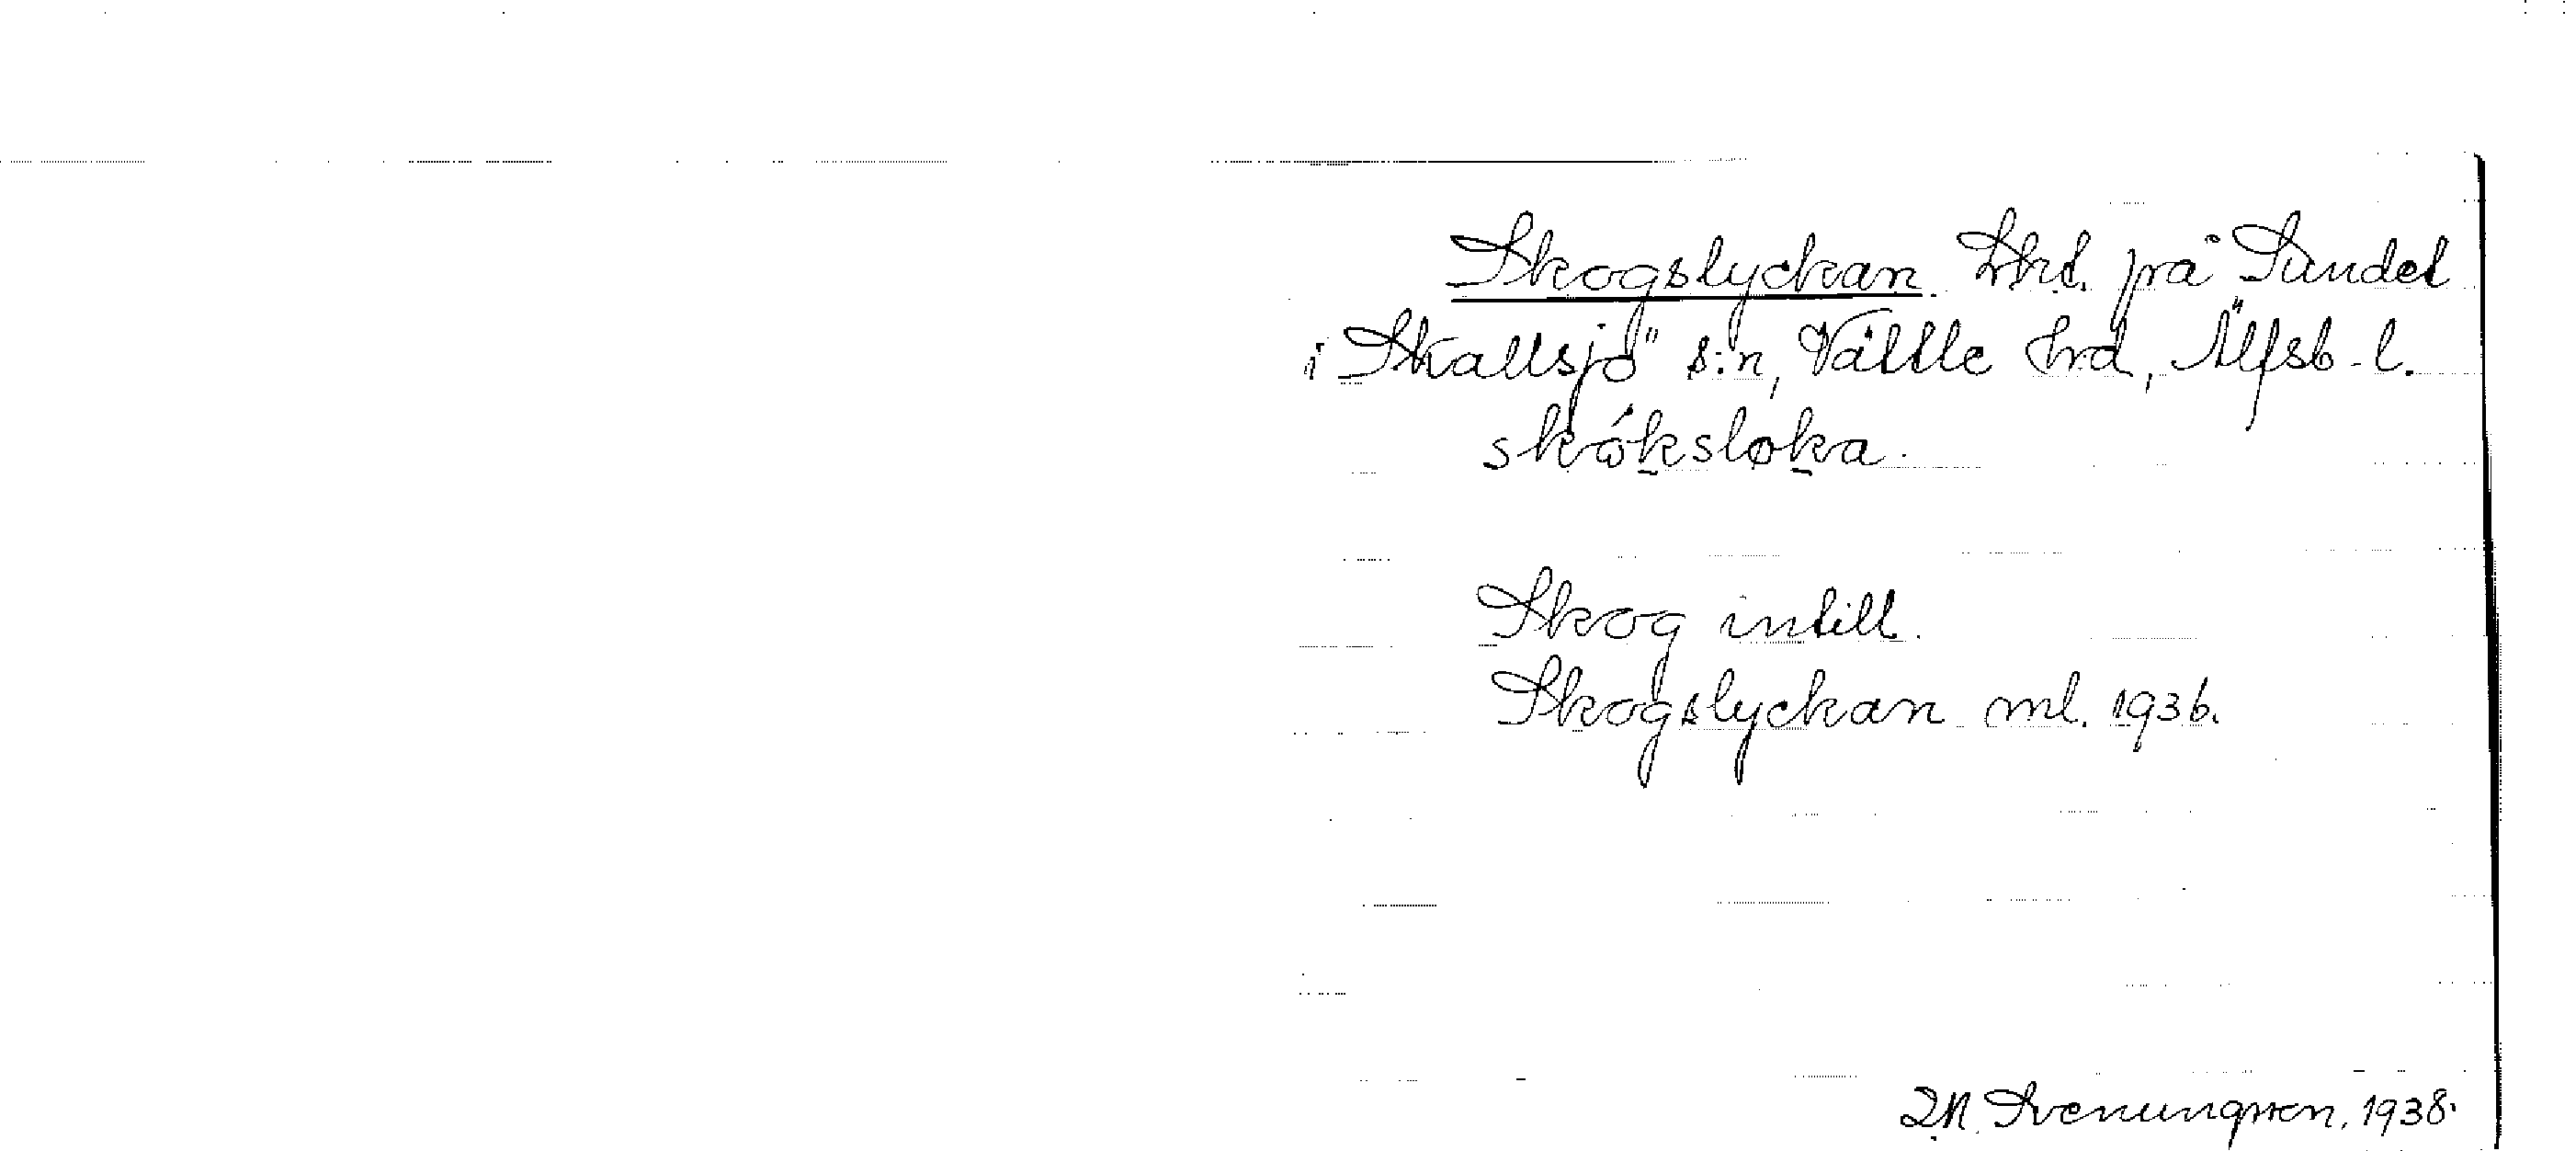 Skogslyckan. Lht. på Sundet
i Skallsjö s:n, Vättle hrd, Älfsb. l.
skóksløka.
Skog intill.
Skogslyckan ml. 1936.
Svenungsson, 1938.